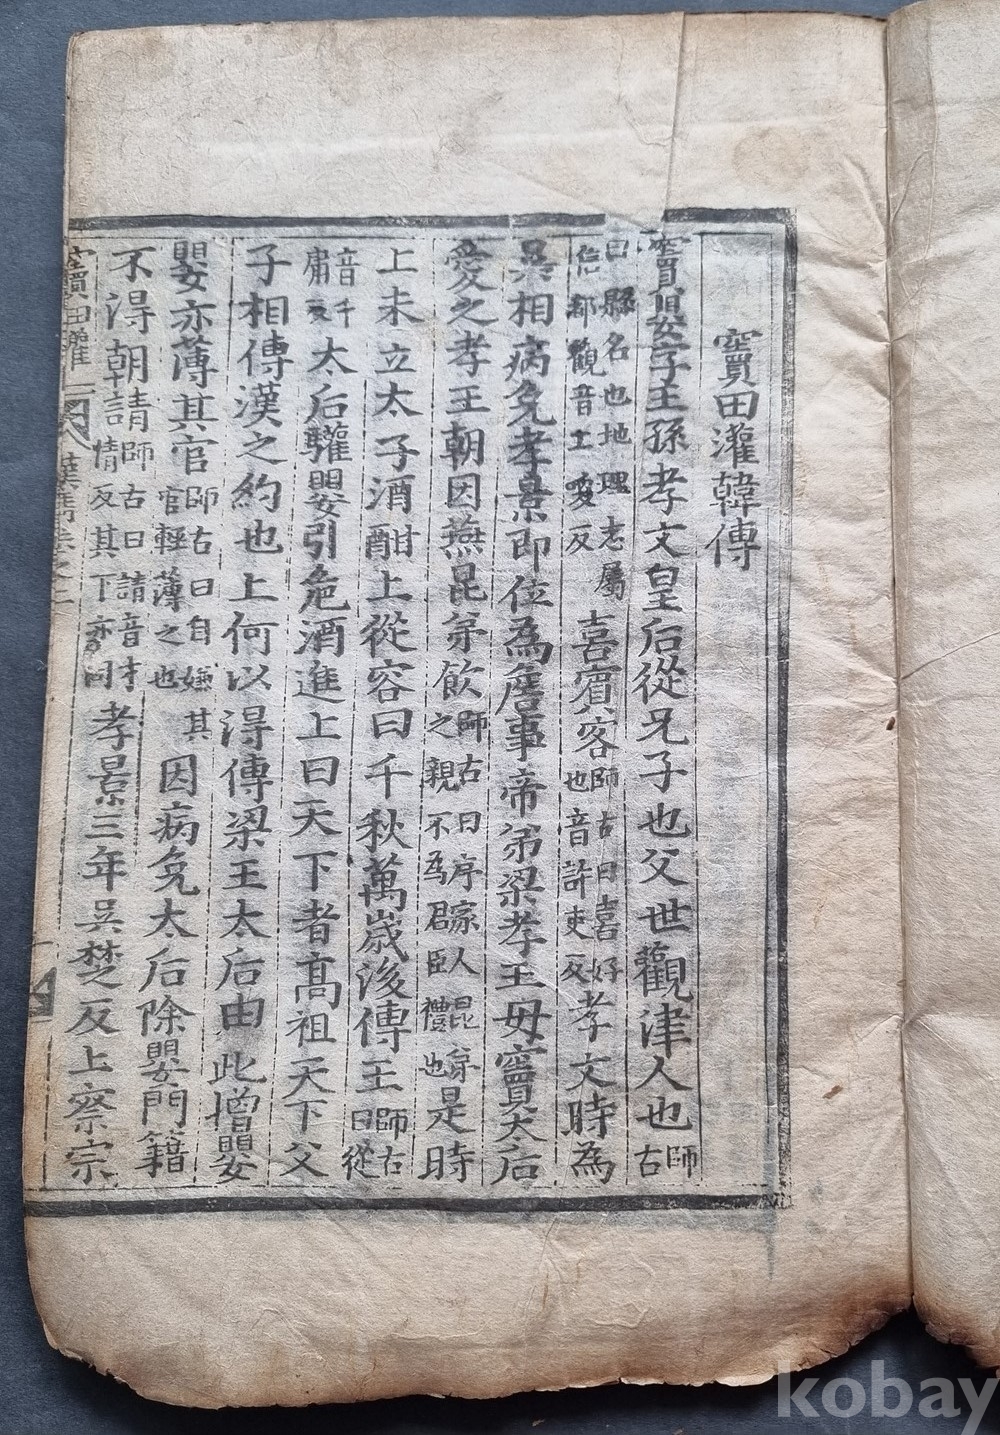 竇田灌韓傳
竇嬰字王孫孝文皇后從兄子也父世觀津人也師古
曰縣名也地理志屬信都觀音工喚反喜賓客師古曰喜好也音許吏反孝文時為
吳相病免孝景即位為詹事帝弟梁孝王母竇太后
愛之孝王朝因燕昆弟飲師古曰序家人昆弟之親不為君臣禮也是時
上未立太子酒酣上從容曰千秋萬歲後傳王師古曰從
音千庸反太后驩嬰引卮酒進上曰天下者高祖天下父
子相傳漢之約也上何以得傳梁王太后由此憎嬰
嬰亦薄其官師古曰自嫌其官輕薄之也因病免太后除嬰門籍
不得朝請師古曰請音才情反其下亦同孝景三年吳楚反上察宗
竇田灌
kobay